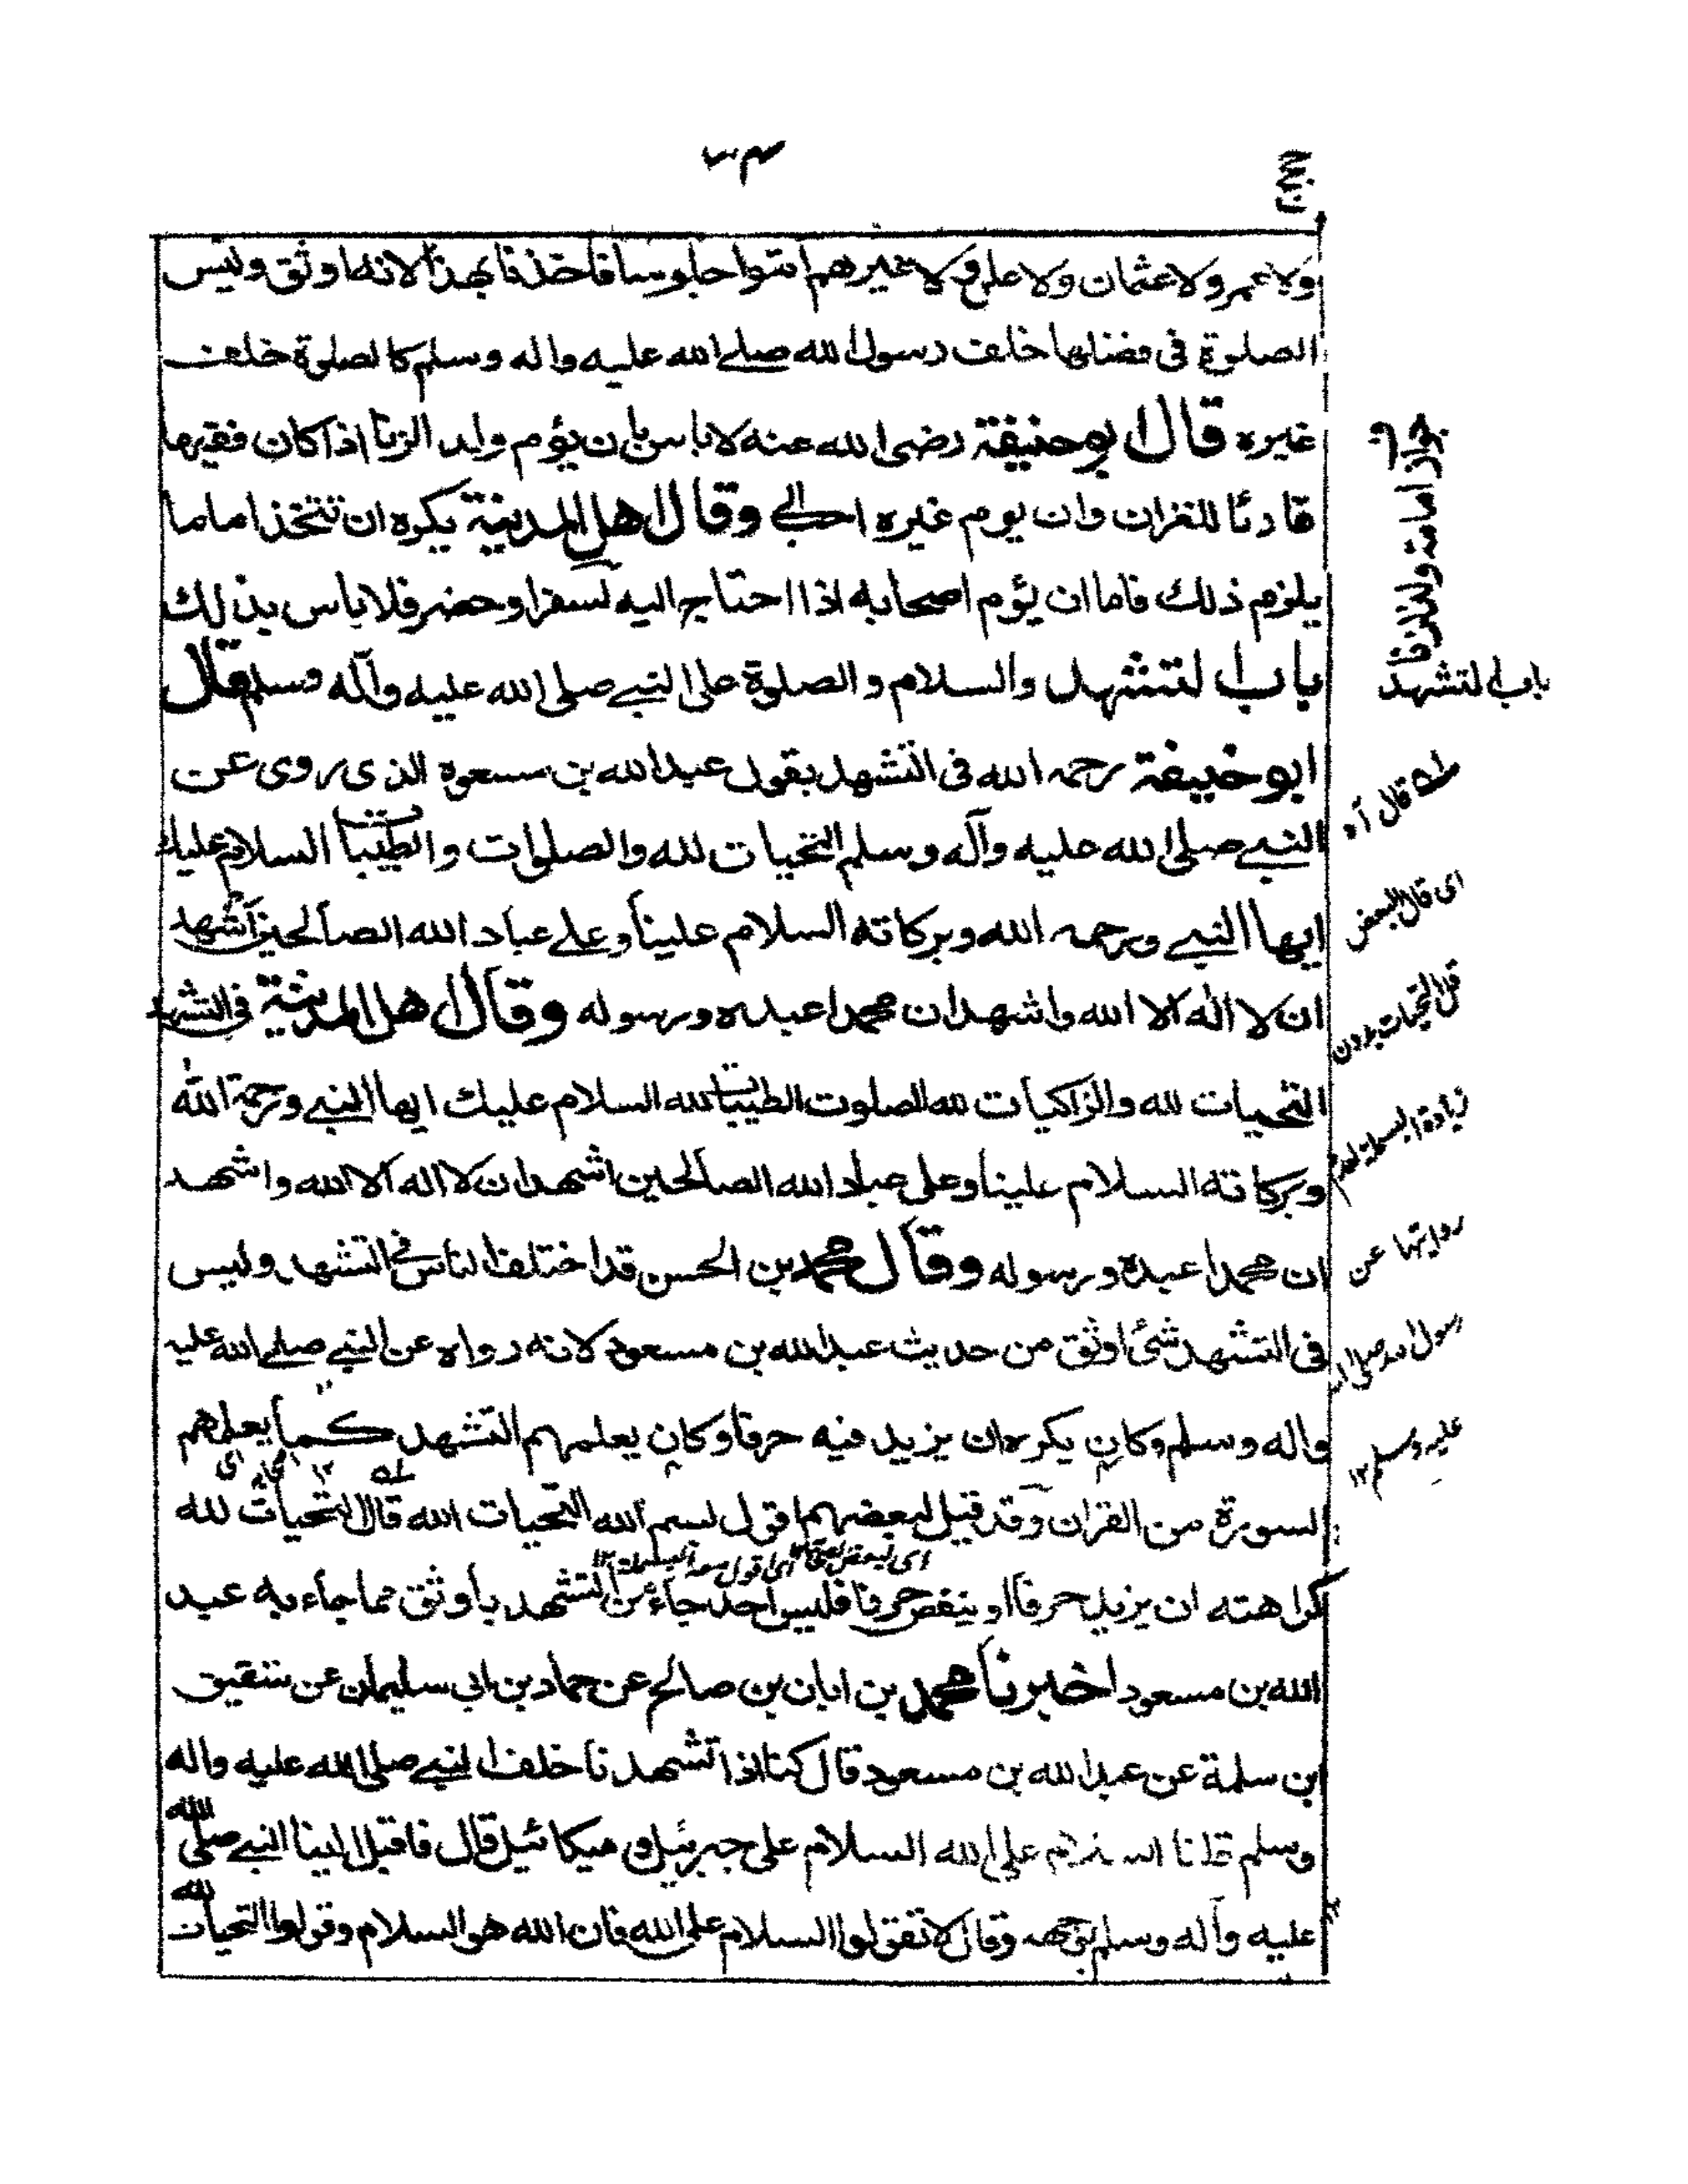 ٣٤
حجج
ولا عمر ولا عثمان ولا علي ولا غيرهم امتوا جلوسا فاخذنا بهذا لانه اوثق وليس
الصلوة فى فضلها خلف رسول الله صلى الله عليه واله وسلم كالصلوة خلف
غيره قال ابو حنيفة رضى الله عنه لا باس بان يؤم ولد الزنا اذا كان فقيها
قارئا للقران وان يوم غيره احب الي وقال اهل المدينة يكره ان تتخذ اماما
يلزم ذلك فاما ان يؤم اصحابه اذا احتاج اليه لسفر او حضر فلا باس بذلك
باب التشهد والسلام والصلوة على النبي صلى الله عليه وآله وسلم قال
ابو حنيفة رحمه الله فى التشهد بقول عبد الله بن مسعود الذى روى عن
النبي صلى الله عليه وآله وسلم التحيات لله والصلوات والطيبات السلام عليك
ايها النبي ورحمه الله وبركاته السلام علينا وعلى عباد الله الصالحين اشهد
ان لا اله الا الله واشهد ان محمدا عبده ورسوله وقال اهل المدينة فى التشهد
التحيات لله والزاكيات لله الصلوت الطيبات لله السلام عليك ايها النبي ورحمة الله
وبركاته السلام علينا وعلى عباد الله الصالحين اشهد ان لا اله الا الله واشهد
ان محمدا عبده ورسوله وقال محمد بن الحسن قد اختلف الناس فى التشهد وليس
فى التشهد شئ اوثق من حديث عبد الله بن مسعود لانه رواه عن النبي صلى الله عليه
واله وسلم وكان يكره ان يزيد فيه حرفا وكان يعلمهم التشهد كما يعلمهم
السورة من القران وقد قيل لبعضهم اقول بسم الله التحيات الله قال التحيات لله
كراهته ان يزيد حرفا او ينقص حرفا فليس احد جاء من التشهد باوثق مما جاء به عبد
الله بن مسعود اخبرنا محمد بن ابان بن صالح عن حماد بن ابي سليمان عن شقيق
بن سلمة عن عبد الله بن مسعود قال كنا اذا تشهدنا خلف النبي صلى الله عليه واله
وسلم قلنا السلام على الله السلام على جبرئيل وميكائيل قال فاقبل الينا النبي صلى الله
عليه وآله وسلم بوجهه وقال لا تقولوا السلام على الله فان الله هو السلام وقولوا التحيات لله
جواز امامة ولد الزنا
باب التشهد
قال آه
اى قال البعض
قل التحيات بدون
زيادة البسملة لعدم
روايتها عن
رسول الله صلى الله
عليه وسلم ١٢